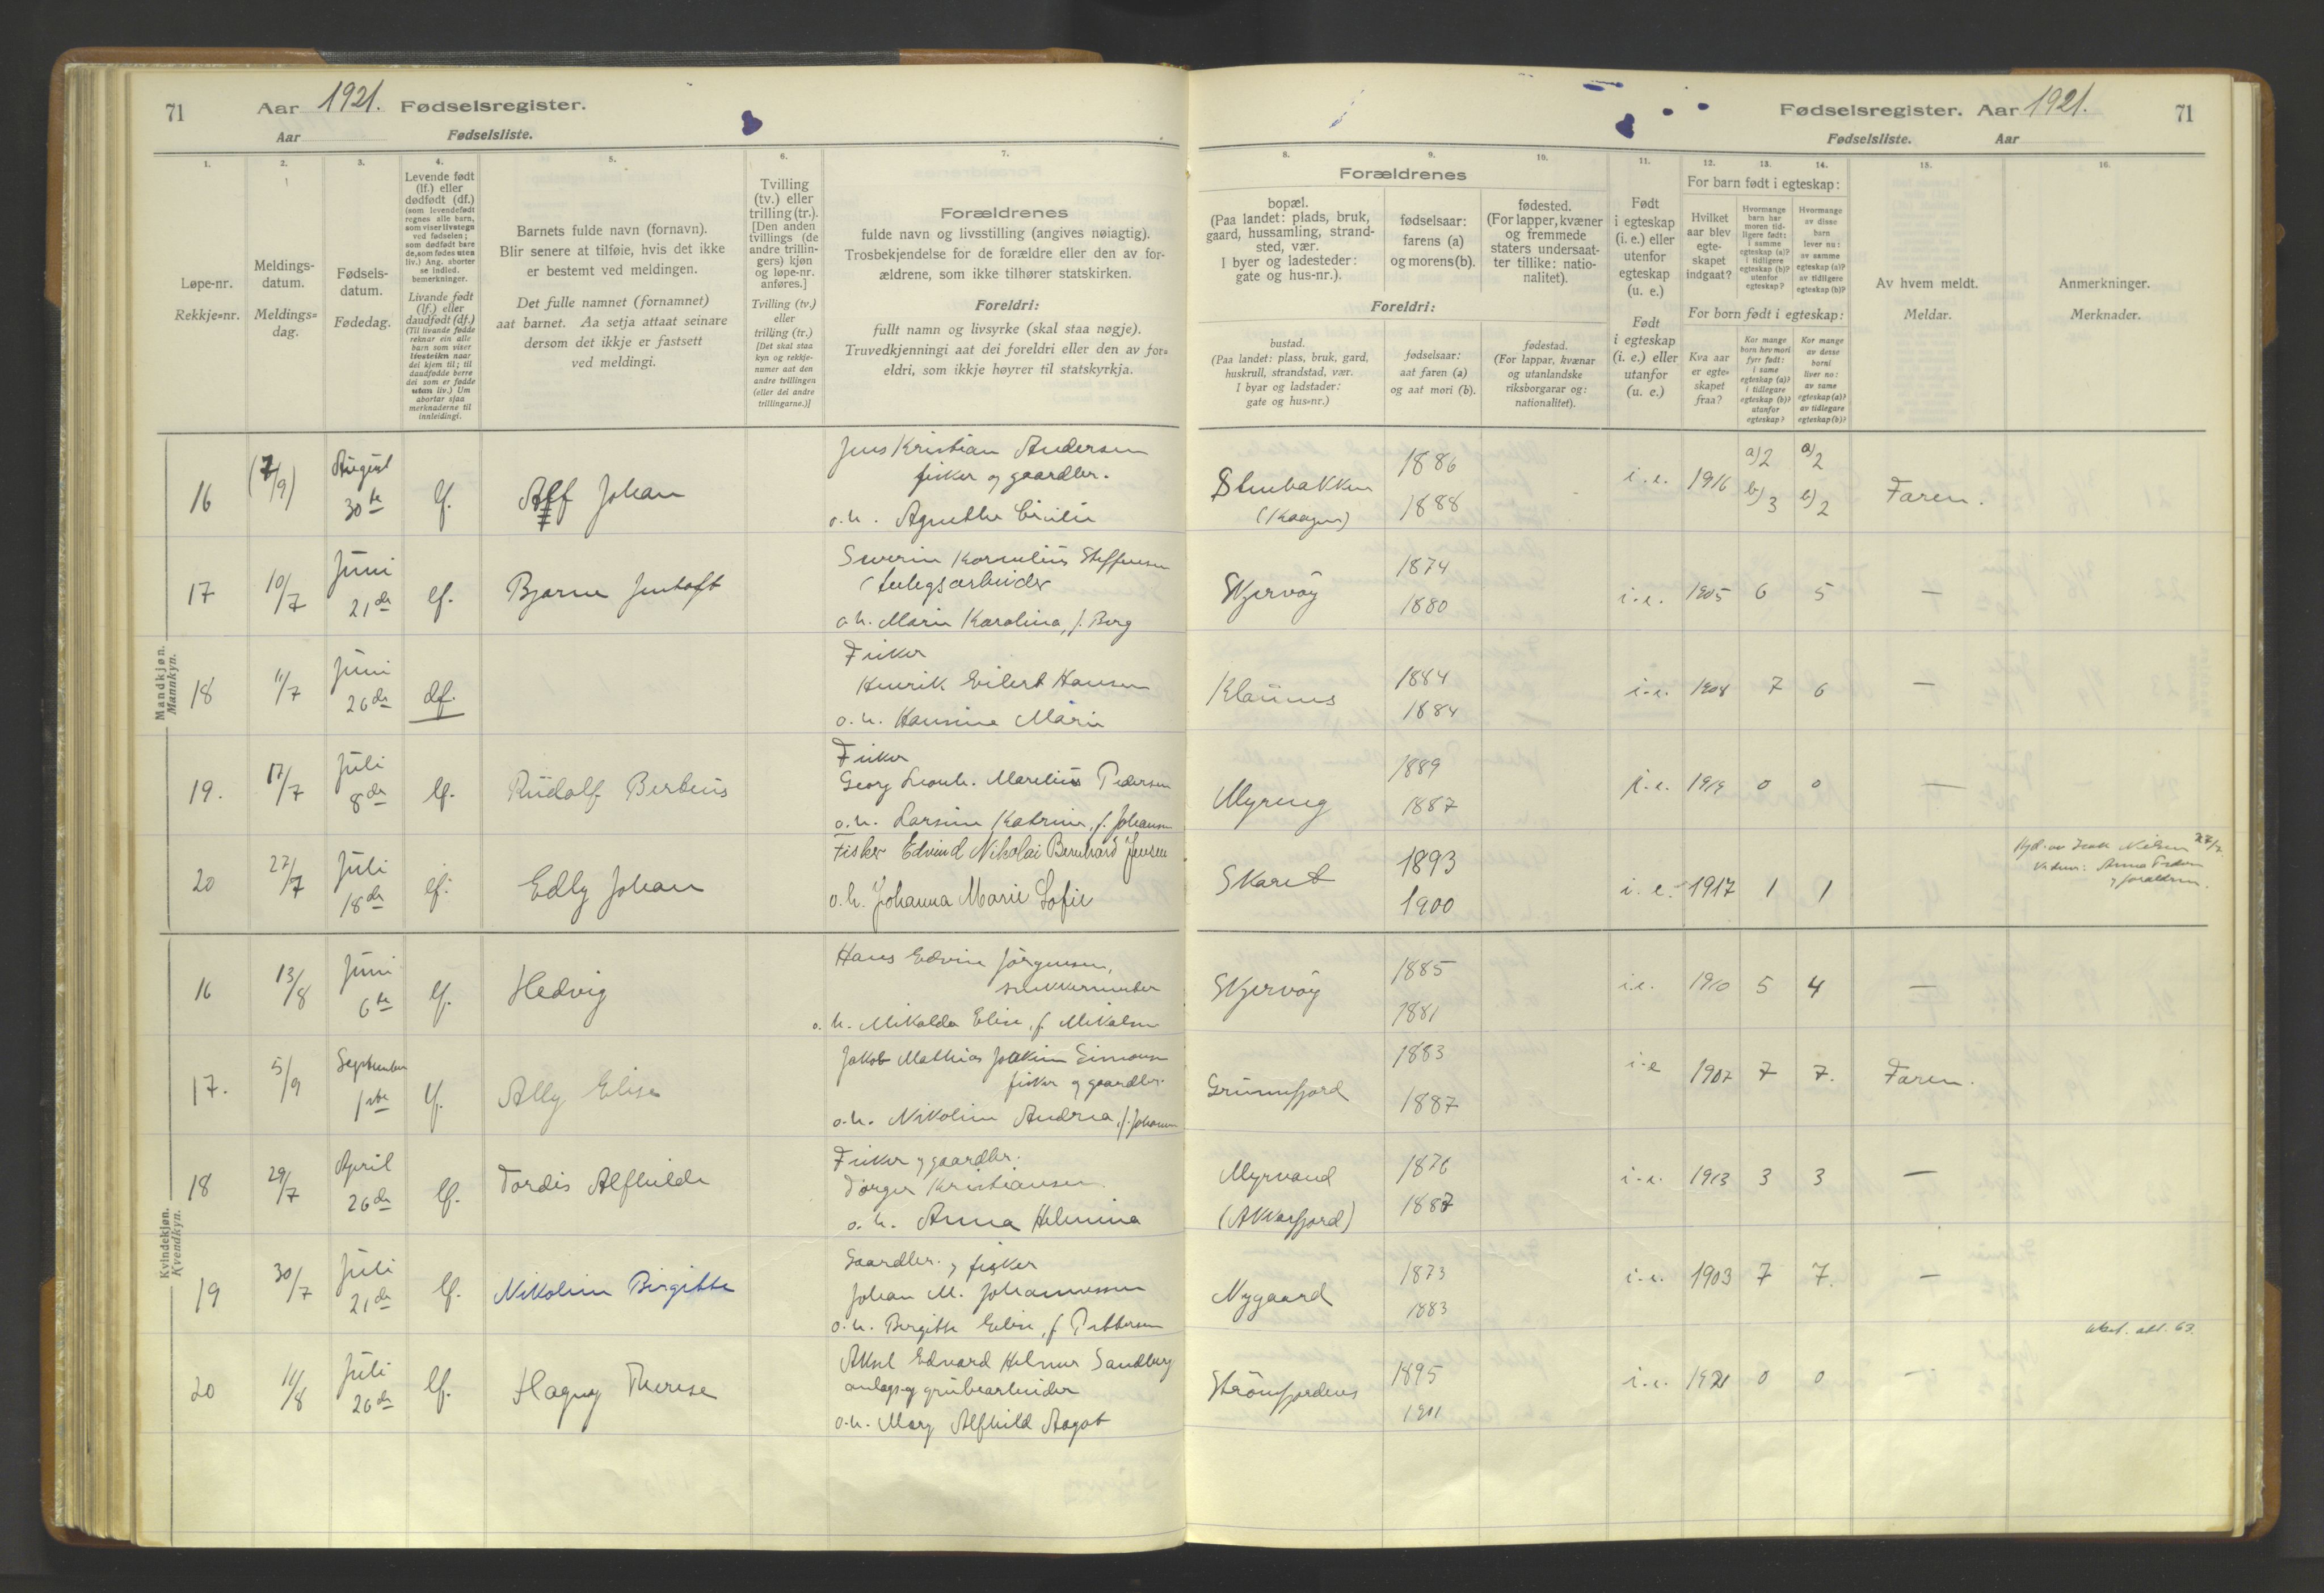 71 Aar 1921. Fødselsregister.
Aar Fødselsliste.
1. 2. 3. 4. 5. 6. 7.
Løpe-nr.
Rekkje-nr.
Meldings-
datum.
Meldings-
dag.
Fødsels-
datum.
Fødedag.
Levende født
(lf.) eller
dødfødt (df.)
(som levendefødt
regnes alle barn,
som viser livstegn
ved fødselen;
som dødfødt bare
de, som fødes uten
liv.) Ang. aborter
se indled.
bemerkninger.
Livande født
(lf.) eller
daudfødt (df.)
(Til livande fødde
reknar ein alle
barn som viser
livsteikn naar
dei kjem til; til
daudfødde berre
dei som er fødde
utan liv.) Um
abortar sjaa
merknaderne til
innleidingi.
Barnets fulde navn (fornavn).
Blir senere at tilføie, hvis det ikke
er bestemt ved meldingen.
Det fulle namnet (fornamnet)
aat barnet. Aa setja attaat seinare
dersom det ikkje er fastsett
ved meldingi.
Tvilling
(tv.) eller
trilling (tr.).
[Den anden
tvillings (de
andre trillin-
gers) kjøn
og løpe-nr.
anføres.]
Tvilling (tv.)
eller
trilling (tr.)
[Det skal staa
kyn og rekkje-
numer aat den
andre tvillingen
(eller dei andre
trillingarne.)]
Forældrenes
fulde navn og livsstilling (angives nøiagtig).
Trosbekjendelse for de forældre eller den av for-
ældrene, som ikke tilhører statskirken.
Foreldri:
fullt namn og livsyrke (skal staa nøgje).
Truvedkjenningi aat dei foreldri eller den av for-
eldri, som ikkje høyrer til statskyrkja.
Fødselsregister. Aar 1921. 71
Fødselsliste. Aar
8. 9. 10. 11. 12. 13. 14. 15. 16.
Forældrenes
bopæl.
(Paa landet: plads, bruk,
gaard, hussamling, strand-
sted, vær.
I byer og ladesteder:
gate og hus-nr.).
fødselsaar:
farens (a)
og morens (b).
fødested.
(For lapper, kvæner
og fremmede
staters undersaat-
ter tillike: natio-
nalitet).
Foreldri:
bustad.
(Paa landet: plass, bruk, gard,
huskrull, strandstad, vær.
I byar og ladstader:
gate og hus-nr.)
fødselsaar:
aat faren (a)
og aat mori (b).
fødestad.
(For lappar, kvænar
og utanlandske
riksborgarar og:
nationalitet).
Født
i egteskap
(i. e.) eller
utenfor
egteskap
(u. e.)
Født
i egteskap
(i. e.) eller
utanfor
(u. e.)
For barn født i egteskap:
Hvilket
aar blev
egte-
skapet
indgaat?
Hvormange
barn har
moren tid-
ligere født:
i samme
egteskap (a)?
i tidligere
egteskap (b)?
utenfor
egteskap?
Hvormange
av disse
barn
lever nu:
av samme
egteskap (a)?
av tidligere
egteskap (b)?
For born født i egteskap:
Kva aar
er egte-
skapet
fraa?
Kor mange
born hev mori
fyrr født:
i same
egteskap (a)?
i tidlegare
egteskap (b)?
utanfor
egteskap?
Kor mange
av desse
borni
liver no:
av same
egteskap (a)?
av tidlegare
egteskap (b)?
Av hvem meldt.
Meldar.
Anmerkninger.
Merknader.
Mandkjøn.
Mannkyn.
16 (7/9) August 30te lf. Alf Johan
Jens Kristian Andersen
fisker og gaardbr.
o.h. Agnethe Cecilie
Stenbakken (Kaagen) 1886 1888 i.e. 1916 a) 2 b) 3 a) 2 b) 2 Faren.
17 10/7 Juni 21de lf. Bjarne Jentoft
Severin Kornelius Steffensen
anlegsarbeider
o.h. Marie Karolina, f. Berg
Skjervöy 1874 1880 i.e. 1905 6 5 —
18 11/7 Juni 26de df.
Fisker
Henrik Eilert Hansen
o.h. Hansine Marie
1884 1884 i.e. 1908 7 6 —
19. 17/7 Juli 8de lf. Rudolf Berteus
Fisker
Georg Leonh. Marelius Pedersen
o.h. Larsine Katrine, f. Johansen
Myreng 1889 1887 i.e. 1919 0 0 —
20 27/7 Juli 18de lf. Edly Johan
Fisker Edvind Nikolai Bernhard Jensen
o.h. Johanna Marie Sofie
Skaret 1893 1900 i.e. 1917 1 1
27/7
Kvindekjøn.
Kvendkyn.
16 13/8 Juni 6te lf. Hedvig
Hans Edvin Jörgensen,
snekkermester
o.h. Mikalda Elise, f. Mikalsen
Skjervöy 1885 1881 i.e. 1910 5 4 —
17. 5/9 September 1ste lf. Ally Elise
Jakob Mathias Joakim Simonsen
fisker og gaardbr.
o.h. Nikoline Andrea, f. Johansen
Grunnfjord 1883 1887 i.e 1907 7 7. Faren.
18 29/7 April 26de lf. Tordis Alfhilde
Fisker og gaardbr.
Torger Kristiansen
o.h. Anna Helmina
Myrvand (Akkarfjord) 1876 1887 i.e. 1913 3 3 —
19 30/7 Juli 21de lf. Nikoline Birgitte
Gaardbr. og fisker
Johan M. Johannessen
o.h. Birgitte Eline, f. Pettersen
Nygaard 1873 1883 i.e. 1903 7 7. —
20 11/8 Juli 26de lf. Hagny Therese
Aksel Edvard Helmer Sandberg
anlegs og grubearbeider
o.h. Mary Alfhild Aagot
Strömfjordnes 1895 1901 i.e. 1921 0 0 —
att. 63.